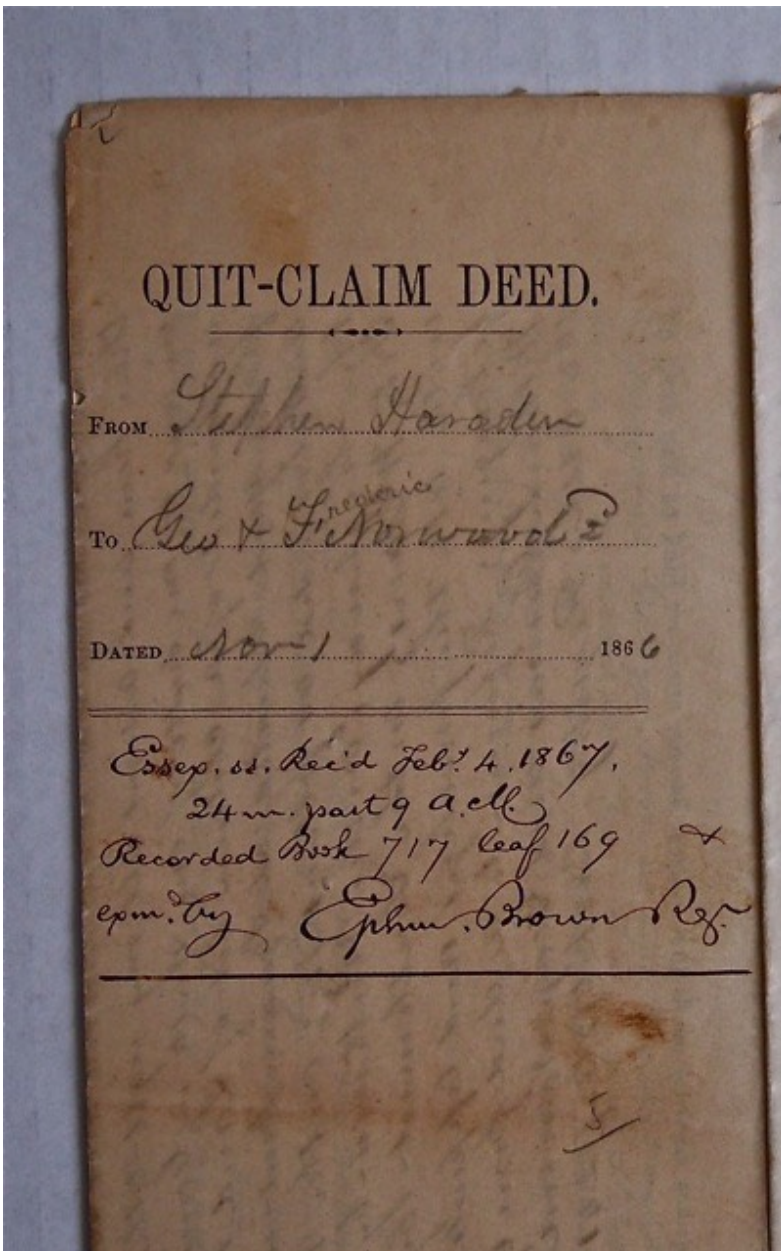 QUIT-CLAIM DEED.
FROM Stephen Haraden
Frederic
To Geo & F. Norwood 2d
DATED Nov 1 1866
Essex. ss. Rec'd Feby. 4. 1867.
24 m. past 9 A.M.
Recorded Book 717 leaf 169 &
exmd. by Ephm. Brown Reg.
5/